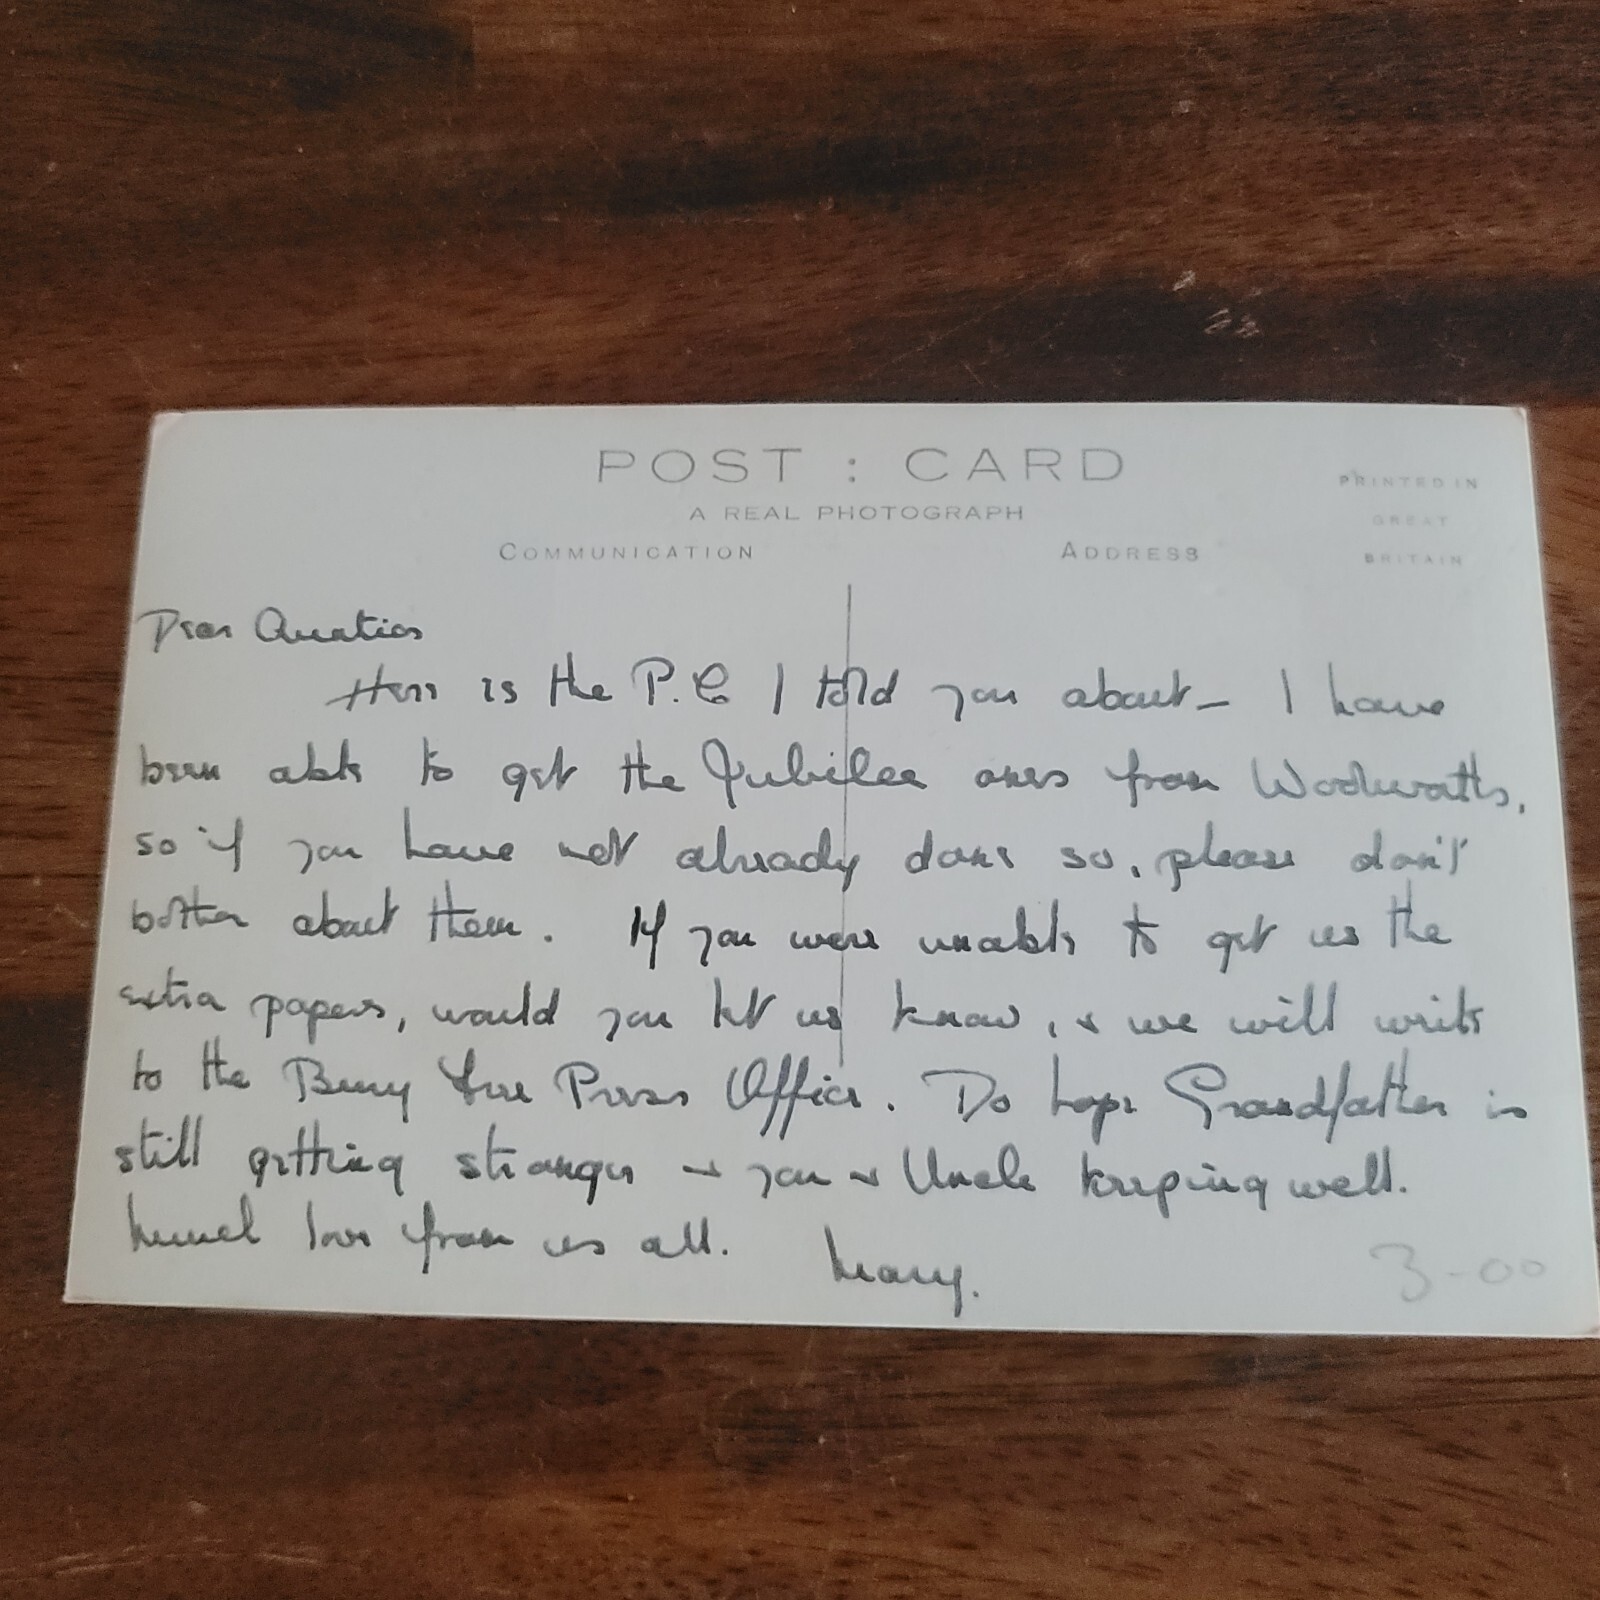 POST : CARD
A REAL PHOTOGRAPH
COMMUNICATION
ADDRESS
PRINTED IN
GREAT
BRITAIN
Dear Auntie
Here is the P.C I told you about – I have
been able to get the Jubilee ones from Woolworths,
so if you have not already done so, please don't
bother about them. If you were unable to get us the
extra papers, would you let us know, & we will write
to the Bury Free Press Office. Do hope Grandfather is
still getting stronger & you & Uncle keeping well.
Much love from us all. Mary.
3-00